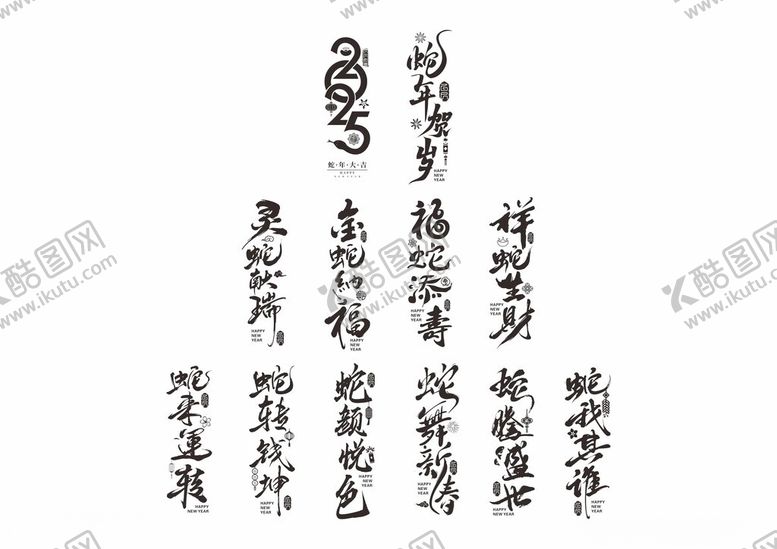 2025
蛇·年·大·吉
HAPPY
NEW YEAR
蛇年贺岁
HAPPY
NEW
YEAR
灵蛇献瑞
HAPPY
NEW YEAR
金蛇纳福
HAPPY
NEW YEAR
福蛇添寿
HAPPY
NEW YEAR
祥蛇生财
HAPPY
NEW YEAR
蛇来运转
HAPPY
NEW YEAR
蛇转钱坤
HAPPY
NEW YEAR
蛇颜悦色
HAPPY
NEW YEAR
蛇舞新春
HAPPY
NEW YEAR
蛇腾盛世
HAPPY
NEW YEAR
蛇我其谁
HAPPY
NEW YEAR
酷图网
www.ikutu.com